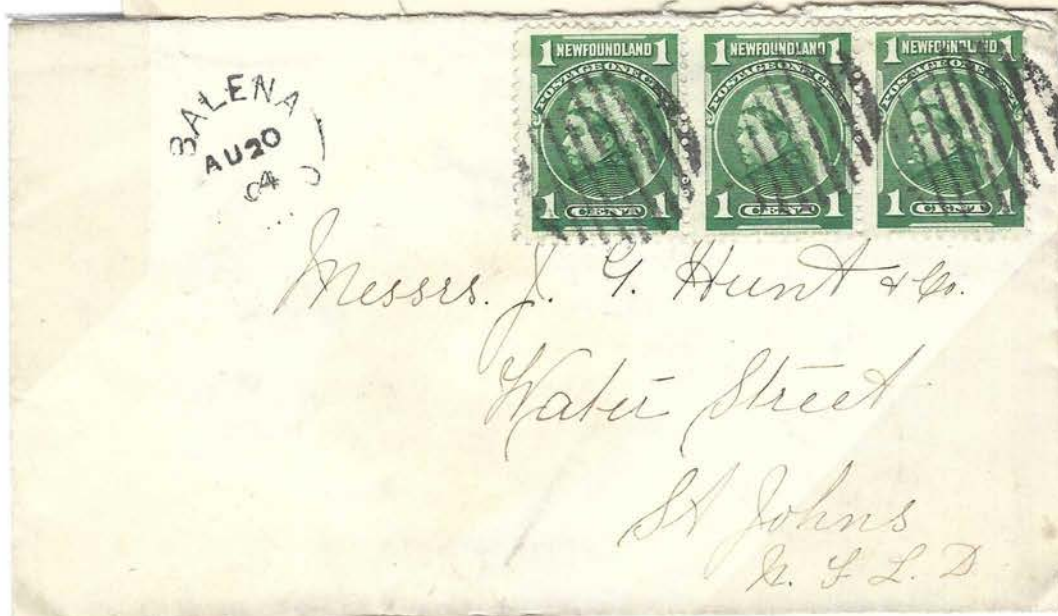 1 NEWFOUNDLAND 1
POSTAGE ONE CENT
1 CENT 1
1 NEWFOUNDLAND 1
POSTAGE ONE CENT
1 CENT 1
1 NEWFOUNDLAND 1
POSTAGE ONE CENT
1 CENT 1
BALENA
AU 20
04
Messrs. J. G. Hunt & Co.
Water Street
St Johns
N. F. L. D